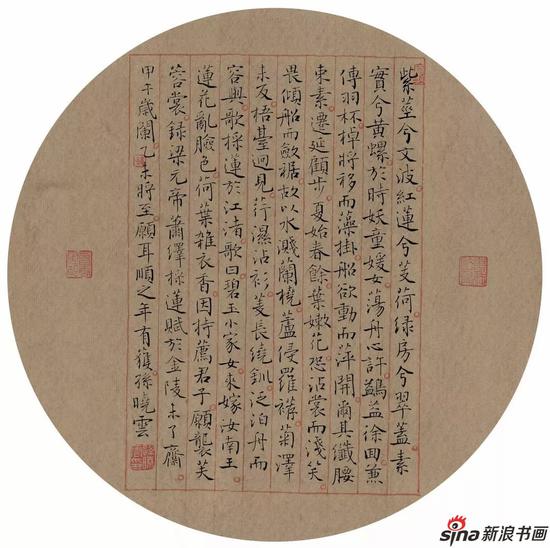 紫莖兮文波紅蓮兮芰荷綠房兮翠蓋素
實兮黃螺於時妖童媛女蕩舟心許鷁益徐回兼
傳羽杯棹將移而藻掛船欲動而萍開爾其纖腰
束素遷延顧步夏始春餘葉嫩花恐沾裳而淺笑
畏傾船而斂裾故以水濺蘭橈蘆侵羅褠菊澤
未反梧臺迥見荇濕沾衫菱長繞釧泛泊舟而
容與歌採蓮於江渚歌曰碧玉小家女來嫁汝南王
蓮花亂臉色荷葉雜衣香因持薦君子願襲芙
蓉裳錄梁元帝蕭繹採蓮賦於金陵未了齋
甲午歲闌乙未將至願耳順之年有獲孫曉雲
sina新浪书画